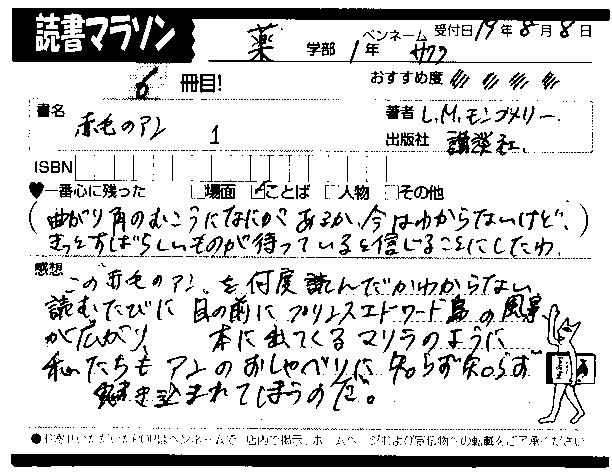 読書マラソン 薬 学部 1年 ペンネーム サクラ 受付日 19年8月8日
6 冊目! おすすめ度
書名 赤毛のアン 1 著者 L.M.モンゴメリー
出版社 講談社
ISBN
♥一番心に残った □場面 ☑ことば □人物 □その他
(曲がり角のむこうになにがあるか、今はわからないけど、
きっとすばらしいものが待っていると信じることにしたわ)
感想
この「赤毛のアン」を何度読んだかわからない
読むたびに目の前にプリンスエドワード島の風景
が広がり 本に出てくるマリラのように
私たちもアンのおしゃべりに知らず知らず
巻き込まれてしまうのだ。
●お寄せいただいたPOPはペンネームで、店内で掲示、ホームページおよび書信物への転載をご了承ください